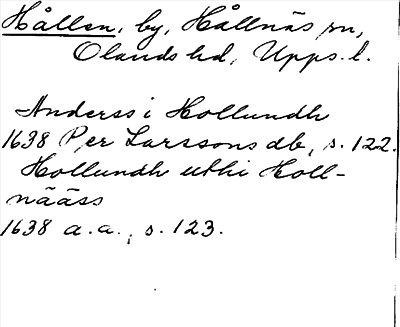 Hållen, by, Hållnäs sn,
Olands hd, Upps. l.
Anderss i Hollundh
1638 Per Larssons db, s. 122.
Hollundh uthi Holl-
nääss
1638 a.a., s. 123.